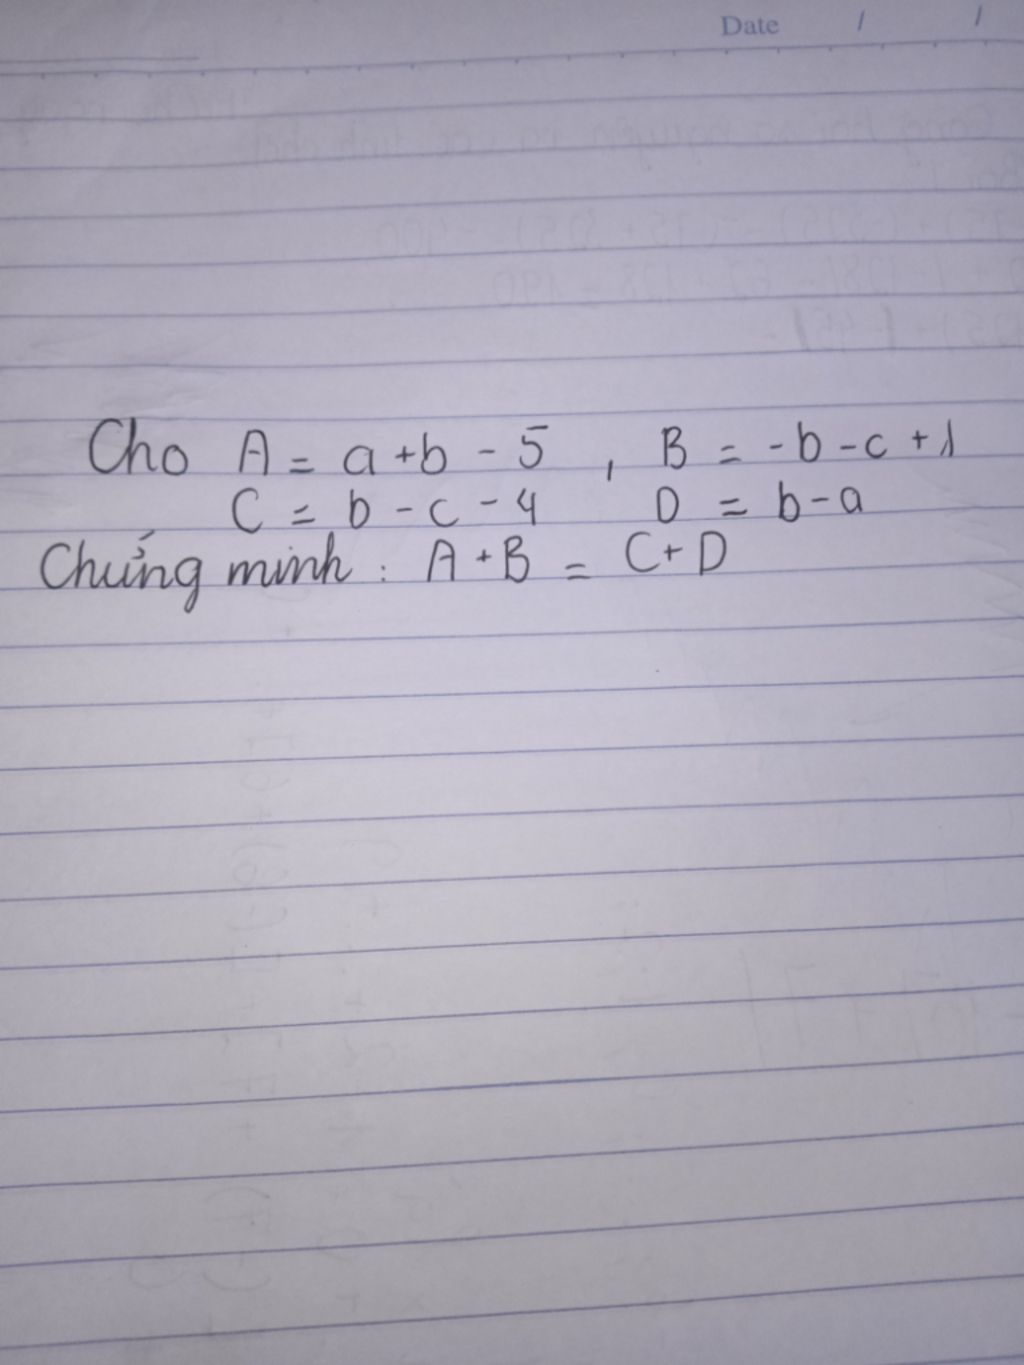 Date / /
Cho A = a + b - 5 , B = - b - c + 1
C = b - c - 4 D = b - a
Chứng minh : A + B = C + D